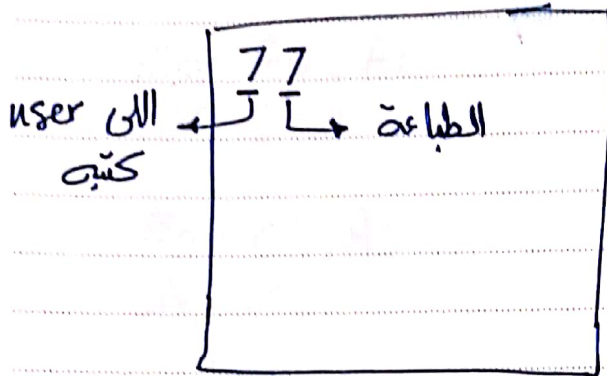 7 7
اللى user
كتبه
الطباعة